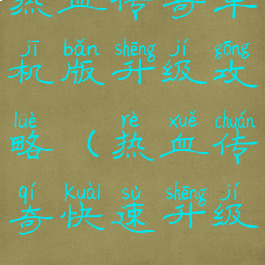 热血传奇单
jī bǎn shēng jí gōng
机版升级攻
lüè rè xuě chuán
略（热血传
qí Kuài sù shēng jí
奇快速升级